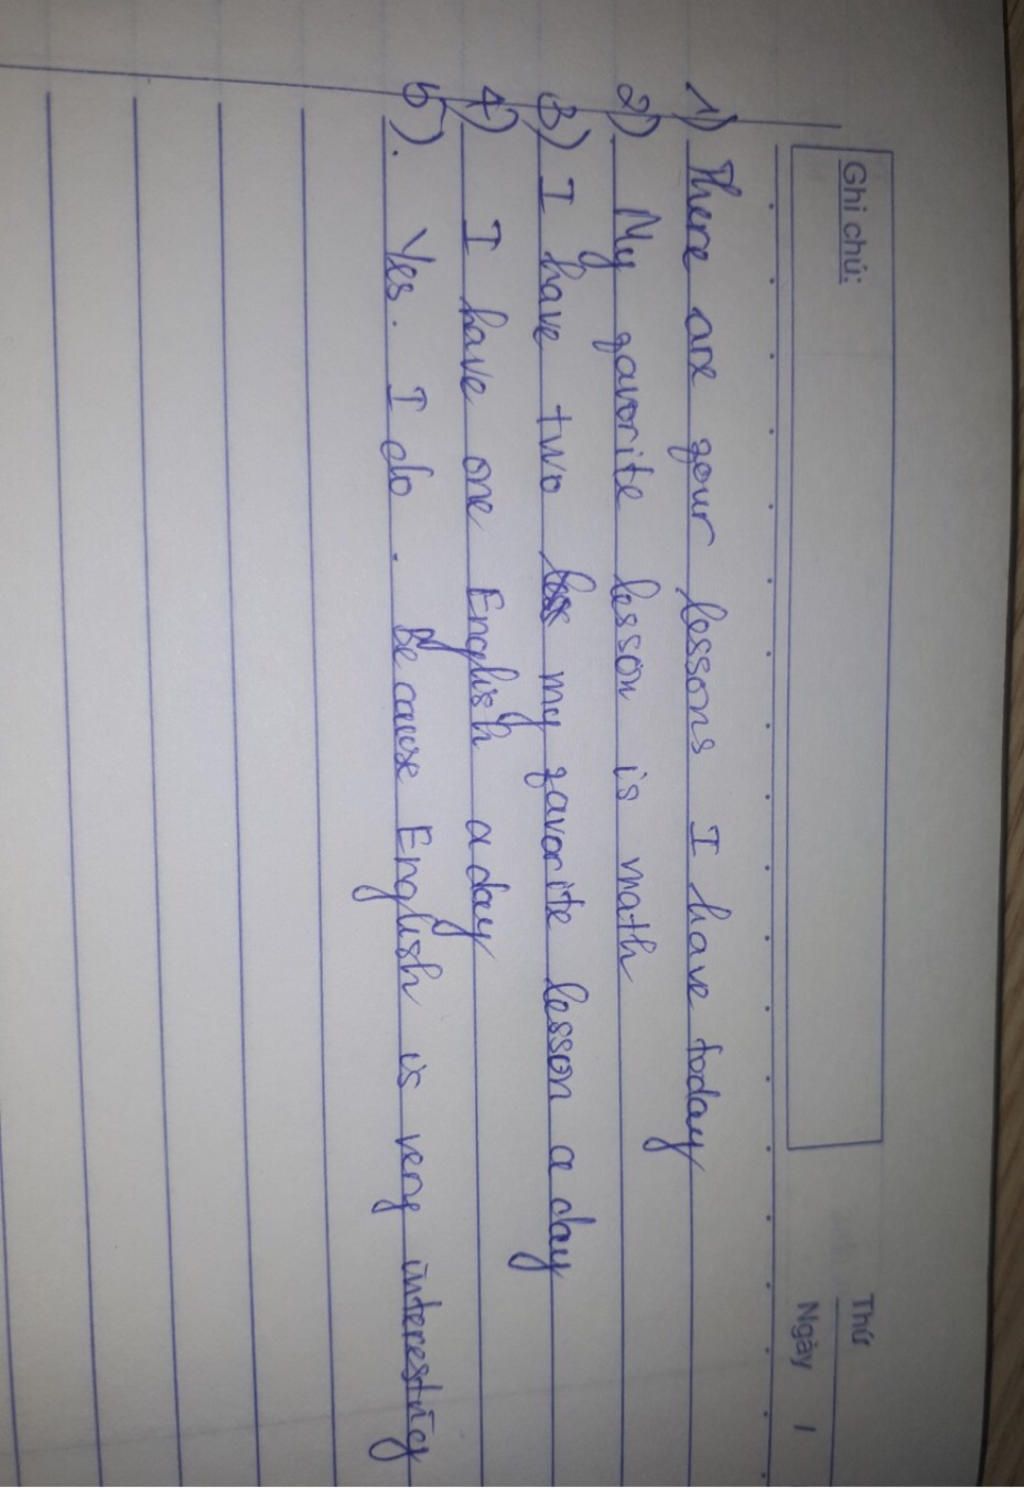 Ghi chú:
Thứ
Ngày /
1) There are four lessons I have today
2) My favorite lesson is math
3) I have two my favorite lesson a day
4) I have one English a day
5). Yes. I do. Because English is very interesting